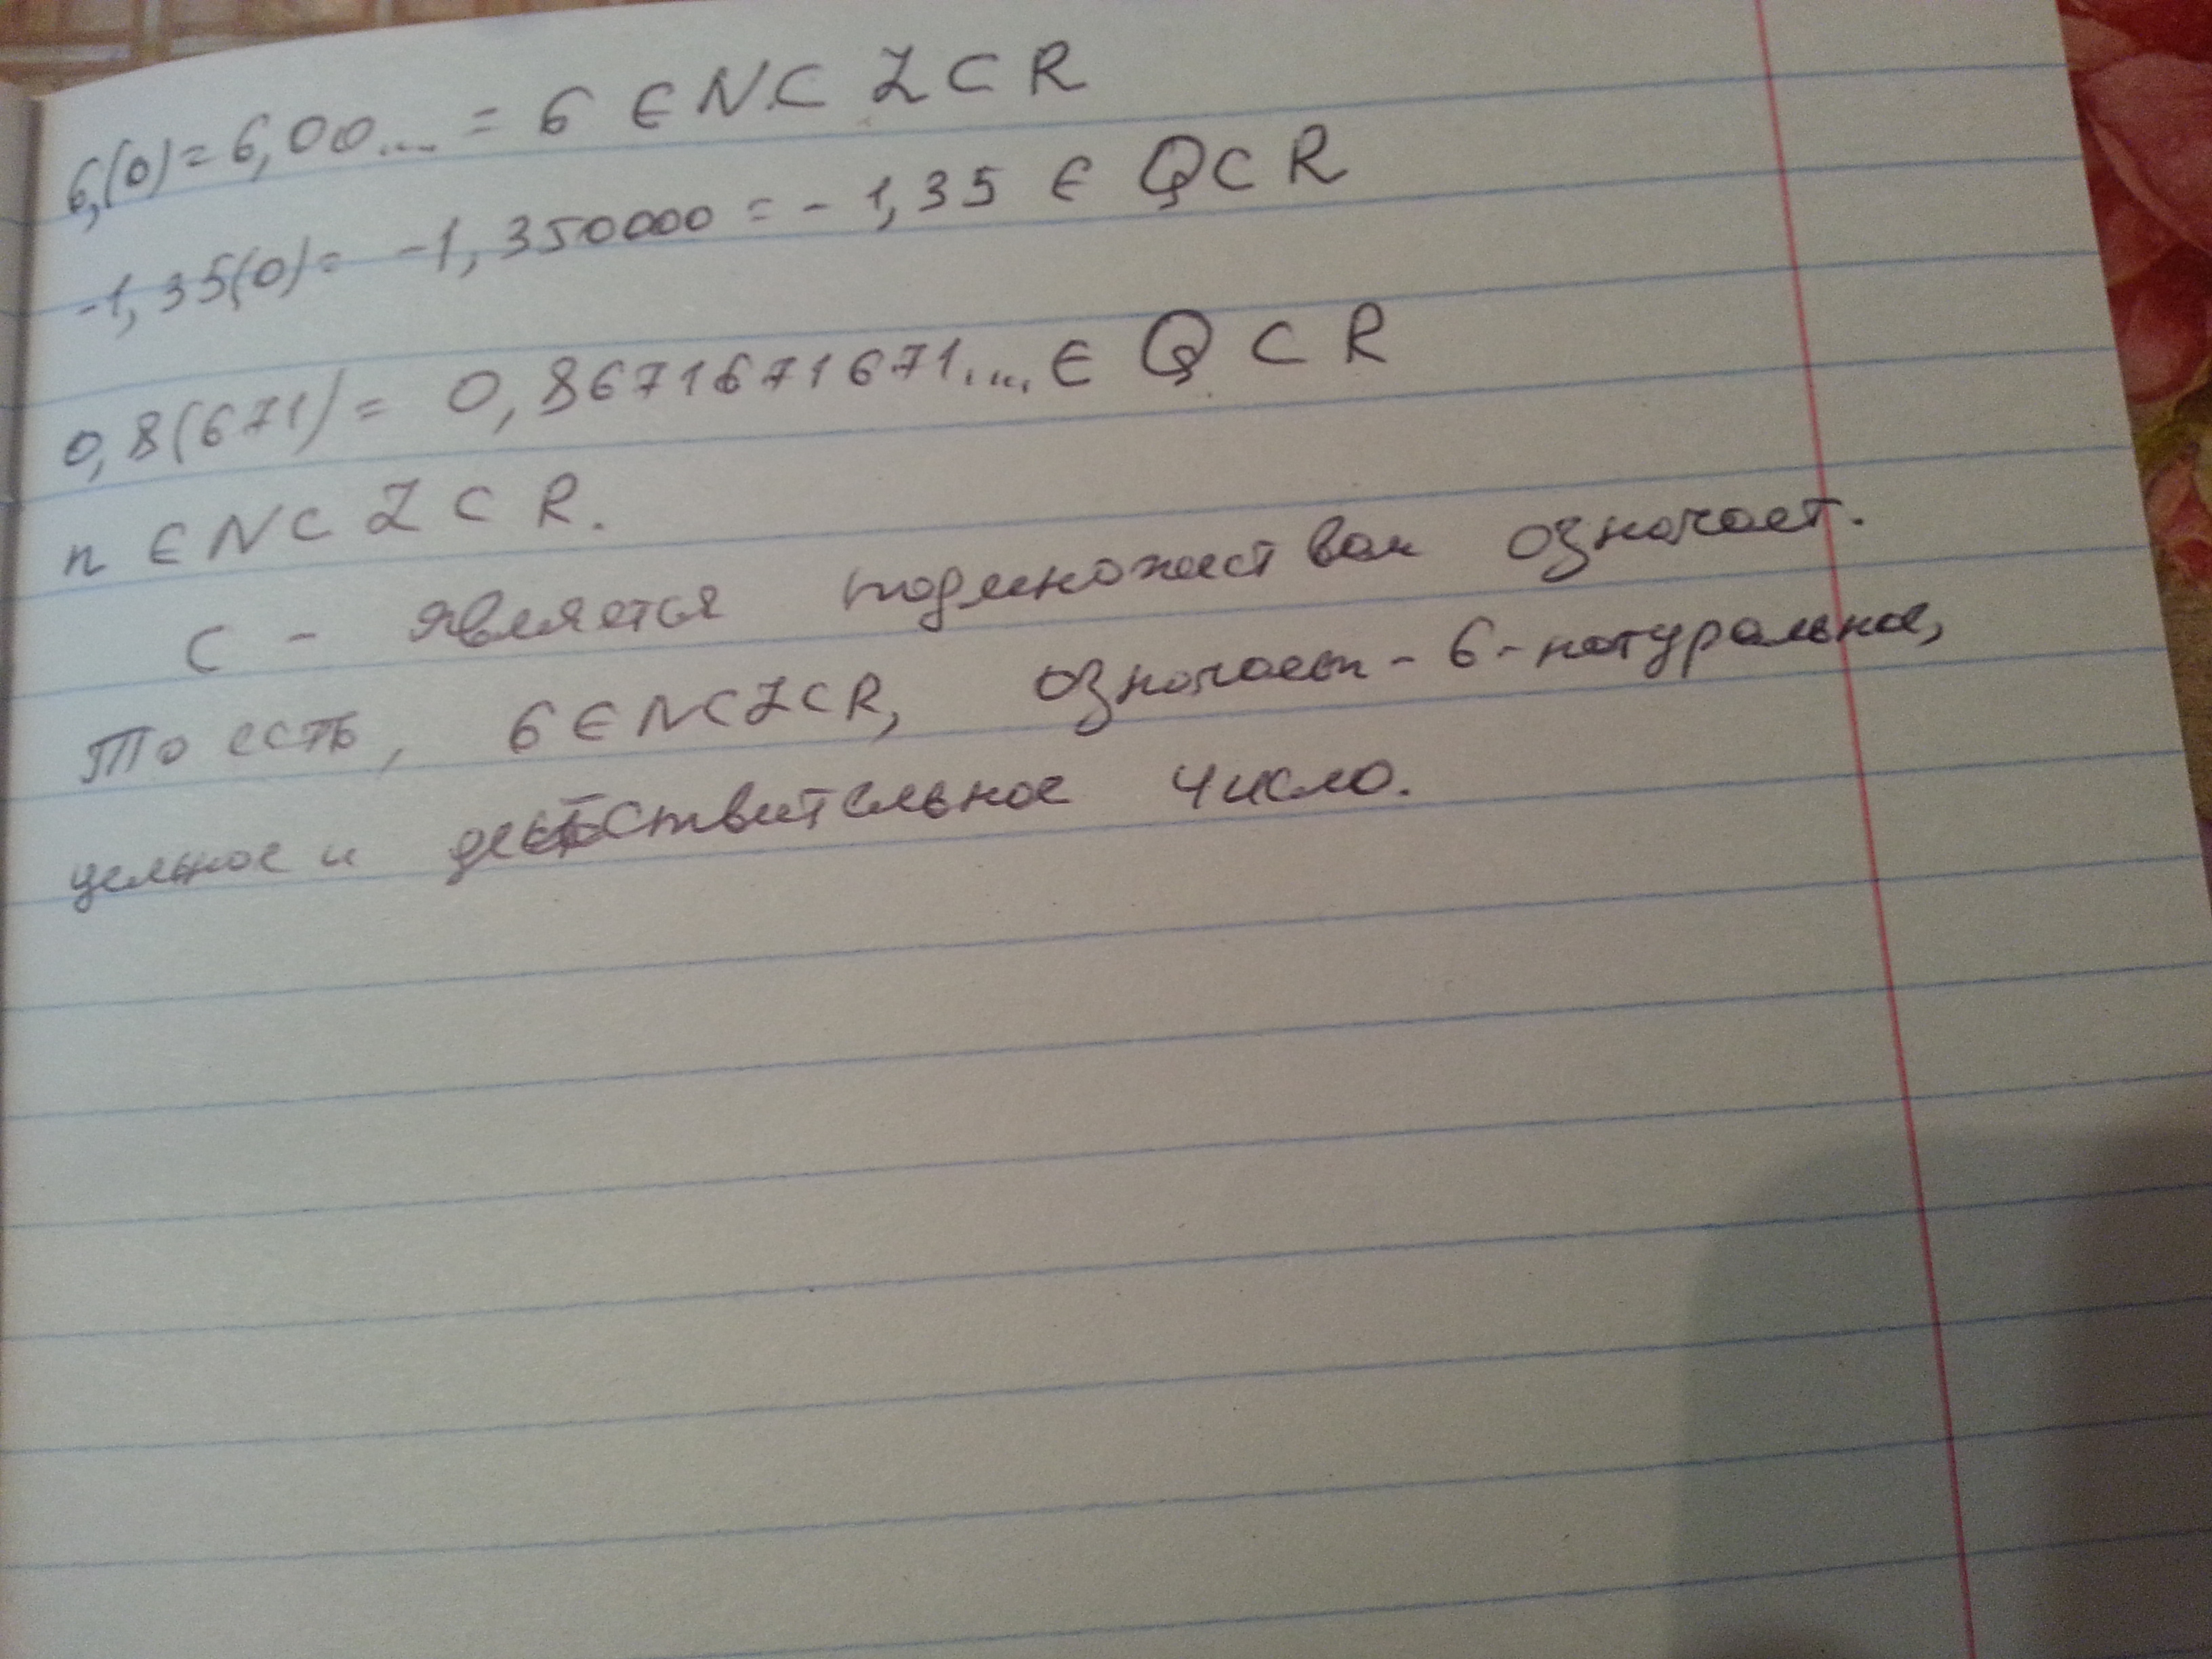 6,(0)=6,00... = 6 ∈ N ⊂ Z ⊂ R
-1,35(0)= -1,350000 = -1,35 ∈ Q ⊂ R
0,8(671)= 0,8671671671.... ∈ Q ⊂ R
n ∈ N ⊂ Z ⊂ R.
⊂ - является подмножеством означает.
То есть, 6 ∈ N ⊂ Z ⊂ R, означает - 6 - натуральное,
цельное и действительное число.